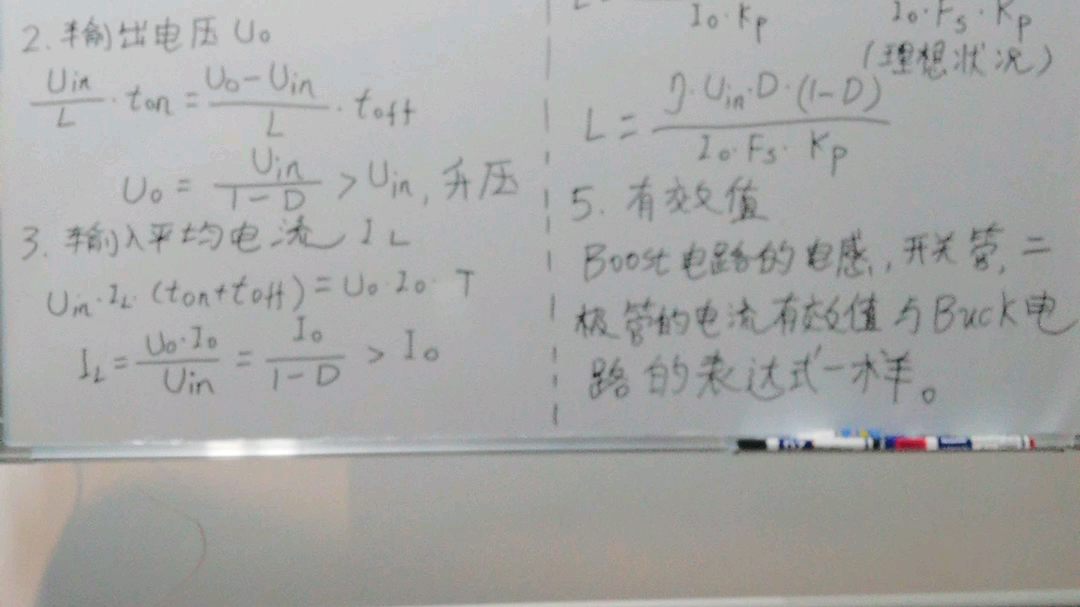 2. 输出电压 Uo
Uin/L · ton = (Uo-Uin)/L · toff
Uo = Uin/(1-D) > Uin, 升压
3. 输入平均电流 IL
Uin·IL·(ton+toff)=Uo·Io·T
IL = Uo·Io/Uin = Io/(1-D) > Io
Io·Kp
Io·Fs·Kp
(理想状况)
L = η·Uin·D·(1-D)/(Io·Fs·Kp)
5. 有效值
Boost电路的电感,开关管,二
极管的电流有效值与Buck电
路的表达式一样。